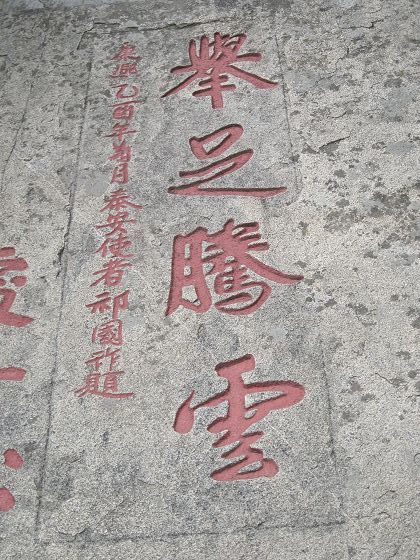 舉足騰雲
康熙乙酉年月泰安使者祁國祚題